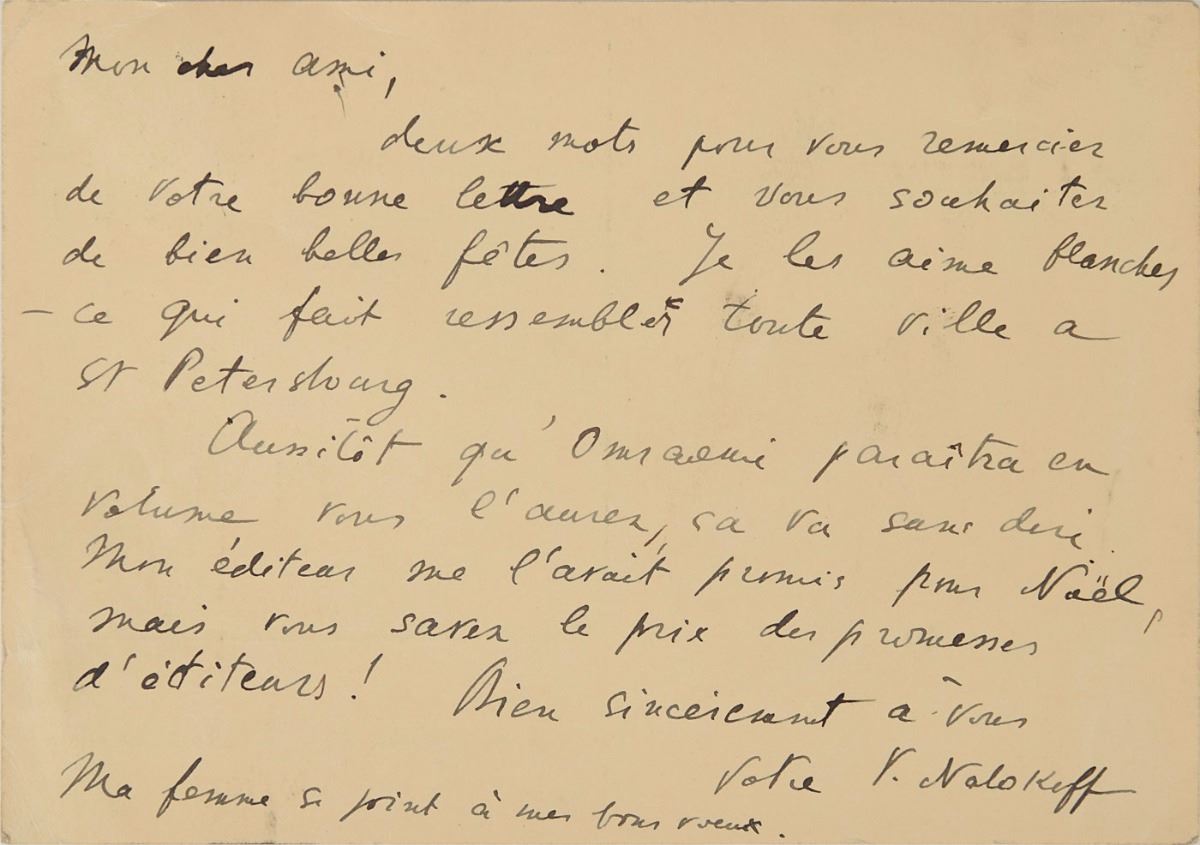 Mon cher ami,
deux mots pour vous remercier
de votre bonne lettre et vous souhaiter
de bien belles fêtes. Je les aime blanches
– ce qui fait ressembler toute ville a
St Petersbourg.
Aussitôt qu'
paraîtra en
volume vous l'aurez, sa va sans dire.
Mon éditeur me l'avait promis pour Noël,
mais vous savez le prix des promesses
d'éditeurs! Bien sincerement à vous
votre V. Nabokoff
Ma femme se joint à mes bons voeux.